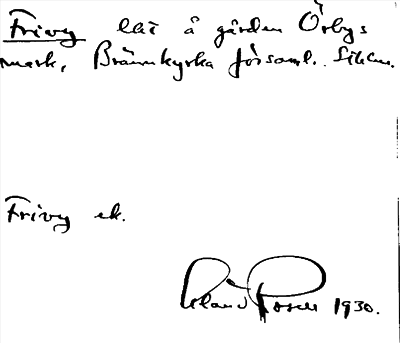 Frivy lht å gården Örbys
mark, Brännkyrka församl. Sthlm.
Frivy ek.
Roland Posse 1930.